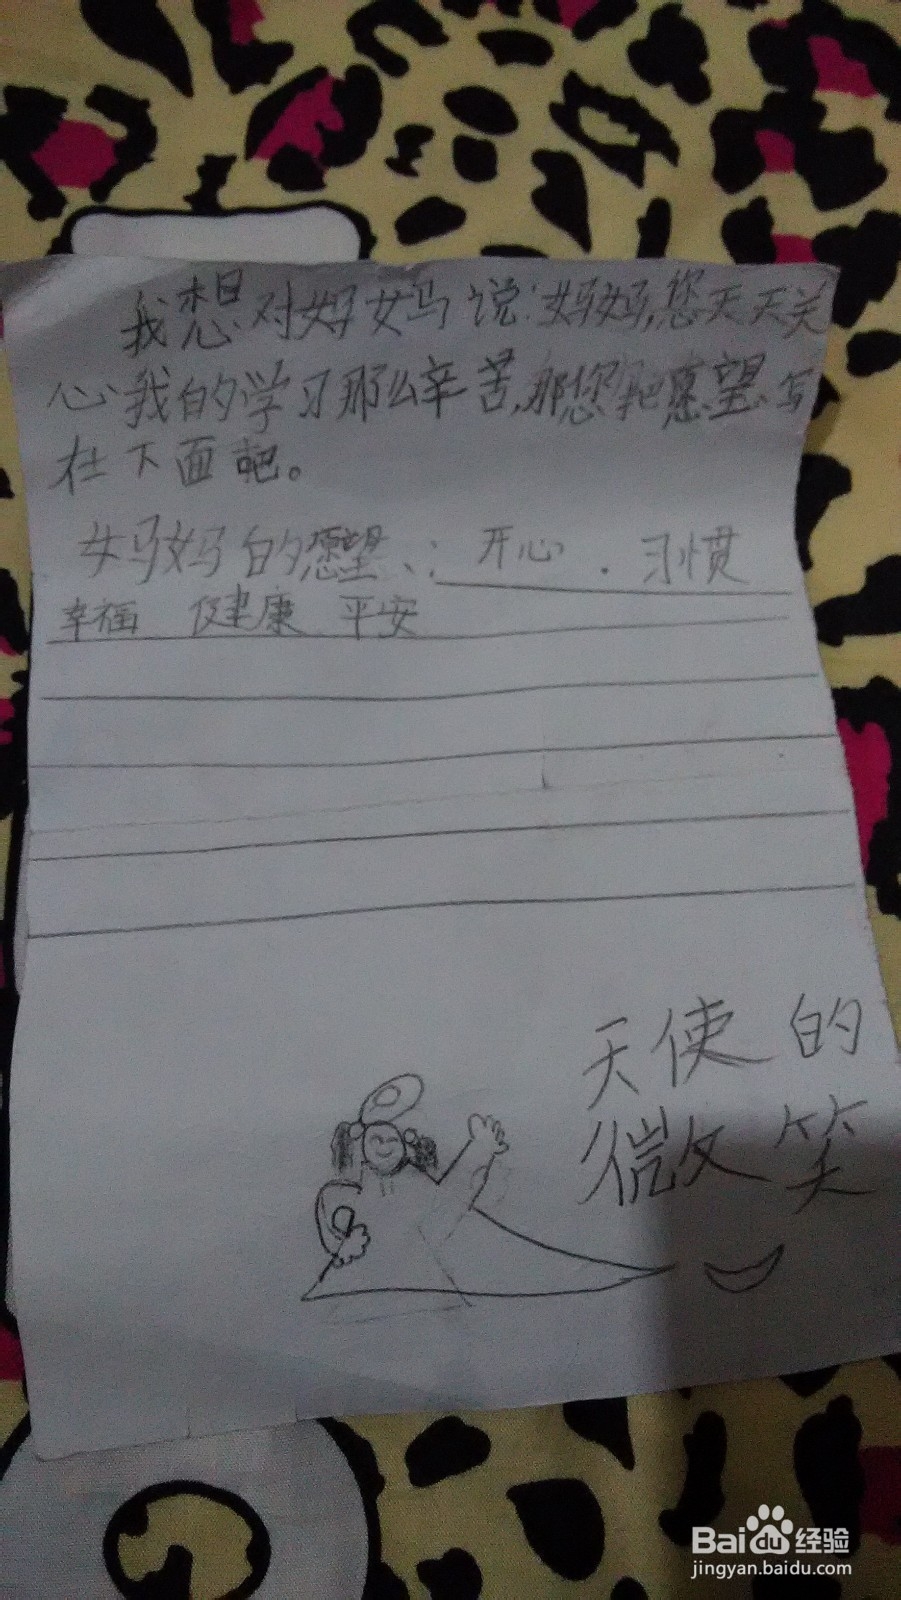 我想对妈妈说:妈妈,您天天关
心我的学习那么辛苦,那您把愿望写
在下面吧。
妈妈的愿望、: 开心 . 习惯
幸福 健康 平安
天使的
微笑
Baidu经验
jingyan.baidu.com